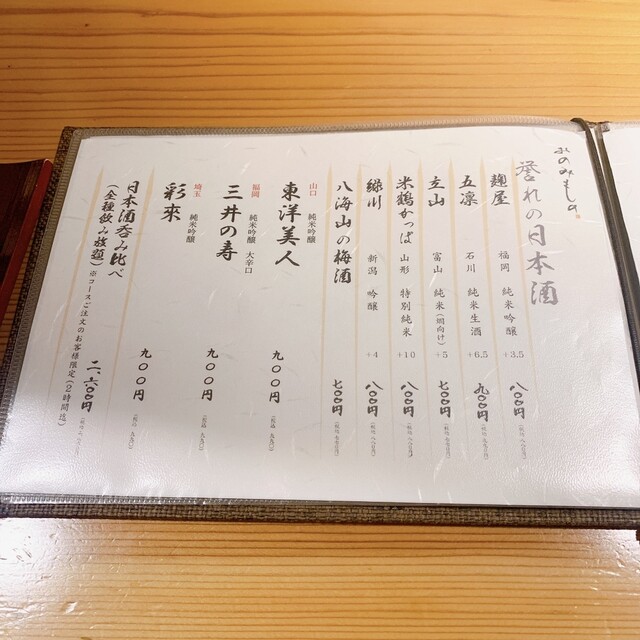 おのみもの
誉れの日本酒
麹屋 福岡 純米吟醸 +3.5 八〇〇円
五凛 石川 純米生酒 +6.5 九〇〇円
立山 富山 純米(燗向け) +5 七〇〇円
米鶴かっぱ 山形 特別純米 +10 八〇〇円
緑川 新潟 吟醸 +4 八〇〇円
八海山の梅酒 七〇〇円
山口 東洋美人 純米吟醸 九〇〇円 (税込 九九〇)
福岡 三井の寿 純米吟醸 大辛口 九〇〇円 (税込 九九〇)
埼玉 彩來 純米吟醸 九〇〇円 (税込 九九〇)
日本酒呑み比べ
(全種飲み放題) 二、六〇〇円
※コースご注文のお客様限定(2時間迄)